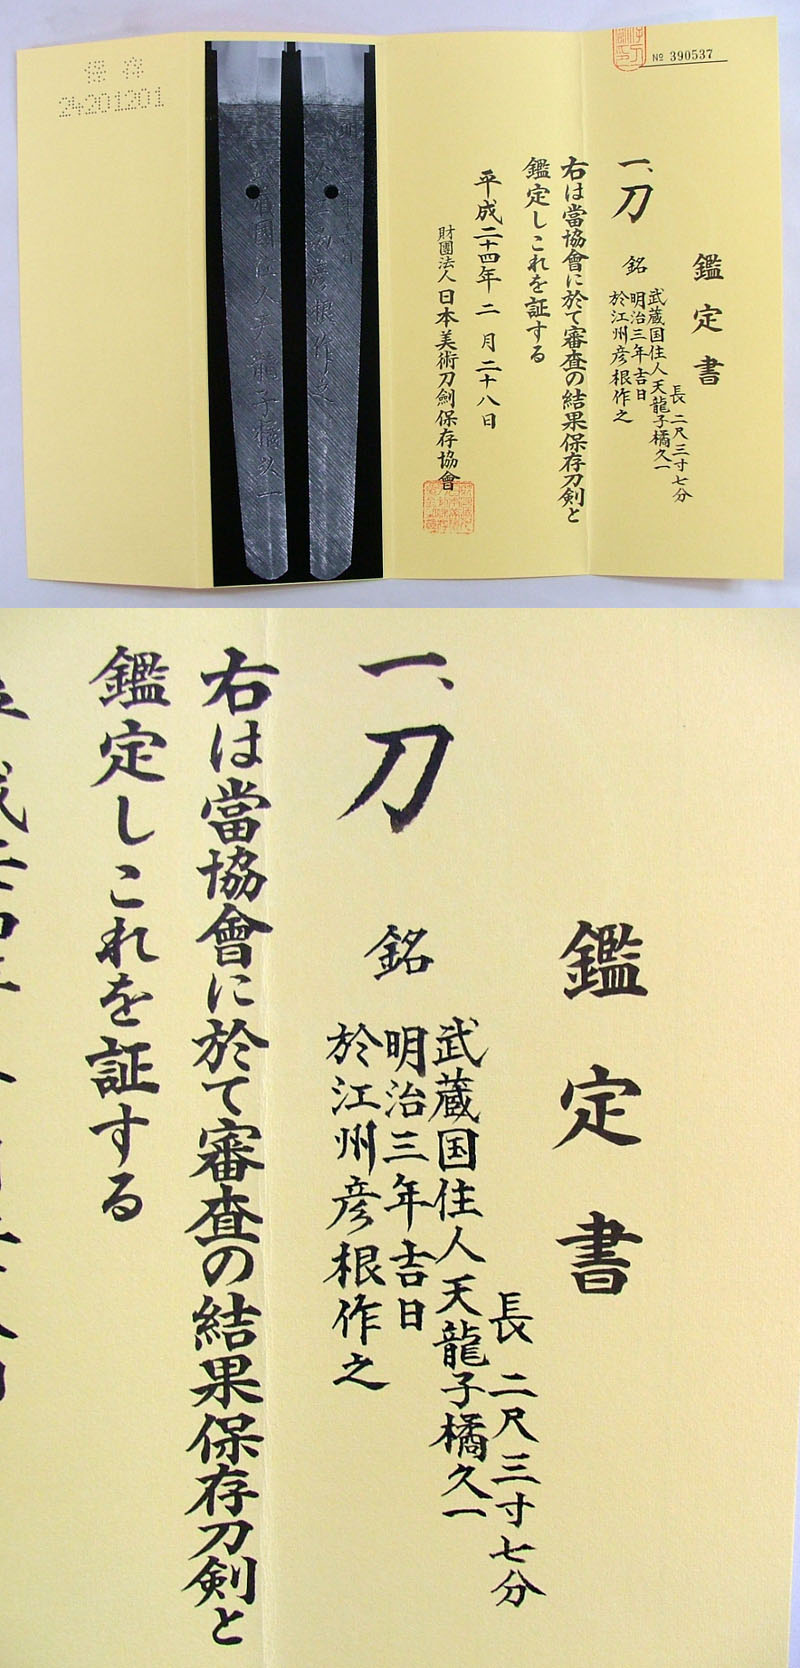 № 390537
鑑定書
長 二尺三寸七分
一、刀 銘
武蔵国住人天龍子橘久一
明治三年吉日
於江州彦根作之
右は當協會に於て審査の結果保存刀剣と
鑑定しこれを証する
平成二十四年 二月二十八日
財團法人 日本美術刀劍保存協會
保存
24201201
國住人天龍子橘久一
彦根作之
鑑定書
長 二尺三寸七分
一、刀 銘
武蔵国住人天龍子橘久一
明治三年吉日
於江州彦根作之
右は當協會に於て審査の結果保存刀剣と
鑑定しこれを証する